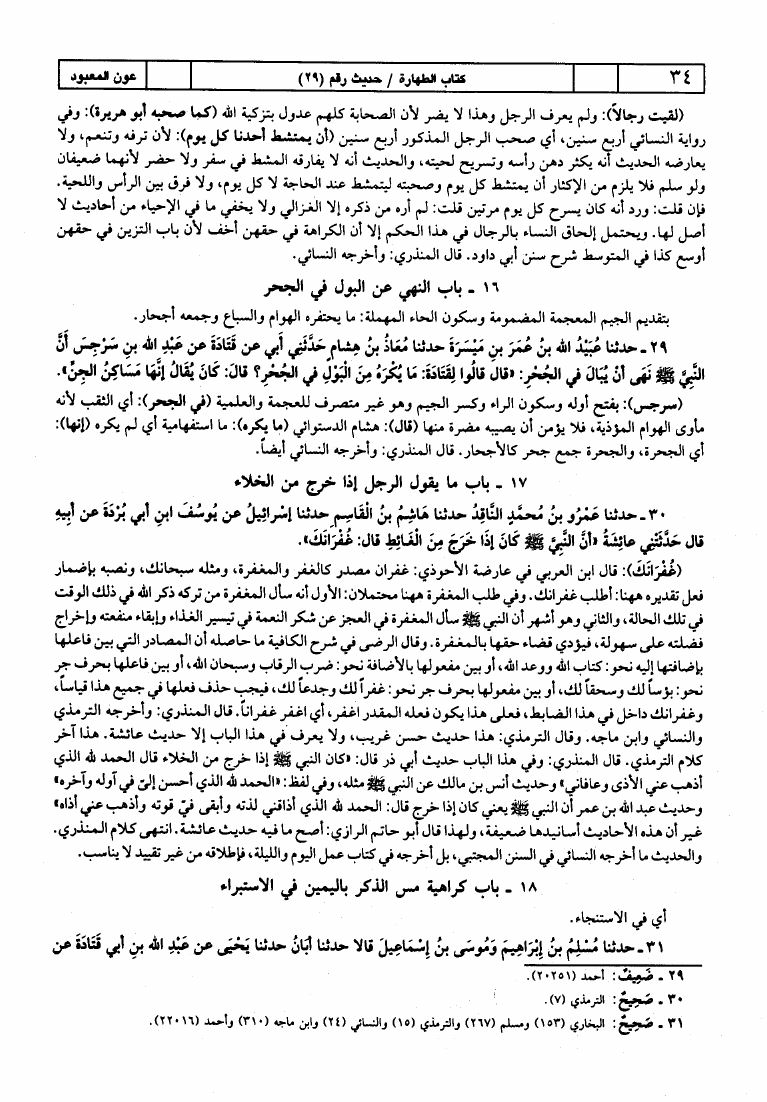 ٣٤
كتاب الطهارة / حديث رقم (٢٩)
عون المعبود
(لقيت رجالاً): ولم يعرف الرجل وهذا لا يضر لأن الصحابة كلهم عدول بتزكية الله (كما صحبه أبو هريرة): وفي
رواية النسائي أربع سنين، أي صحب الرجل المذكور أربع سنين (أن يمتشط أحدنا كل يوم): لأن ترفه وتنعم، ولا
يعارضه الحديث أنه يكثر دهن رأسه وتسريح لحيته، والحديث أنه لا يفارقه المشط في سفر ولا حضر لأنهما ضعيفان
ولو سلم فلا يلزم من الإكثار أن يمتشط كل يوم وصحبته ليتمشط عند الحاجة لا كل يوم، ولا فرق بين الرأس واللحية.
فإن قلت: ورد أنه كان يسرح كل يوم مرتين قلت: لم أره من ذكره إلا الغزالي ولا يخفي ما في الإحياء من أحاديث لا
أصل لها. ويحتمل إلحاق النساء بالرجال في هذا الحكم إلا أن الكراهة في حقهن أخف لأن باب التزين في حقهن
أوسع كذا في المتوسط شرح سنن أبي داود. قال المنذري: وأخرجه النسائي.
١٦ ـ باب النهي عن البول في الجحر
بتقديم الجيم المعجمة المضمومة وسكون الحاء المهملة: ما يحتفره الهوام والسباع وجمعه أجحار.
٢٩ ـ حدثنا عُبَيْدُ الله بنُ عُمَرَ بنِ مَيْسَرَةَ حدثنا مُعَاذُ بنُ هِشامٍ حَدَّثَنِي أبي عن قَتَادَةَ عن عَبْدِ الله بنِ سَرْجِسَ أنَّ
النَّبِيَّ ﷺ نَهَى أنْ يُبَالَ في الْجُحْرِ: «قال قالُوا لِقَتَادَةَ: مَا يُكْرَهُ مِنَ الْبَوْلِ في الْجُحْرِ؟ قالَ: كَانَ يُقَالُ إنَّهَا مَسَاكِنُ الْجِنِّ».
(سرجس): بفتح أوله وسكون الراء وكسر الجيم وهو غير متصرف للعجمة والعلمية (في الجحر): أي الثقب لأنه
مأوى الهوام المؤذية، فلا يؤمن أن يصيبه مضرة منها (قال): هشام الدستوائي (ما يكره): ما استفهامية أي لم يكره (إنها):
أي الجحرة، والجحرة جمع جحر كالأجحار. قال المنذري: وأخرجه النسائي أيضاً.
١٧ ـ باب ما يقول الرجل إذا خرج من الخلاء
٣٠ ـ حدثنا عَمْرُو بنُ مُحمَّدٍ النَّاقِدُ حدثنا هَاشِمُ بنُ الْقَاسِمِ حدثنا إسْرائِيلُ عن يُوسُفَ ابنِ أبي بُرْدَةَ عن أبيهِ
قال حَدَّثَتْنِي عائِشَةُ «أنَّ النَّبِيَّ ﷺ كَانَ إذَا خَرَجَ مِنَ الْغَائِطِ قال: غُفْرَانَكَ».
(غُفْرَانَكَ): قال ابن العربي في عارضة الأحوذي: غفران مصدر كالغفر والمغفرة، ومثله سبحانك، ونصبه بإضمار
فعل تقديره ههنا: أطلب غفرانك. وفي طلب المغفرة ههنا محتملان: الأول أنه سأل المغفرة من تركه ذكر الله في ذلك الوقت
في تلك الحالة، والثاني وهو أشهر أن النبي ﷺ سأل المغفرة في العجز عن شكر النعمة في تيسير الغذاء وإبقاء منفعته وإخراج
فضلته على سهولة، فيؤدي قضاء حقها بالمغفرة. وقال الرضى في شرح الكافية ما حاصله أن المصادر التي بين فاعلها
بإضافتها إليه نحو: كتاب الله ووعد الله، أو بين مفعولها بالأضافة نحو: ضرب الرقاب وسبحان الله، أو بين فاعلها بحرف جر
نحو: بؤساً لك وسحقاً لك، أو بين مفعولها بحرف جر نحو: غفراً لك وجدعاً لك، فيجب حذف فعلها في جميع هذا قياساً،
وغفرانك داخل في هذا الضابط، فعلى هذا يكون فعله المقدر اغفر، أي اغفر غفراناً. قال المنذري: وأخرجه الترمذي
والنسائي وابن ماجه. وقال الترمذي: هذا حديث حسن غريب، ولا يعرف في هذا الباب إلا حديث عائشة. هذا آخر
كلام الترمذي. قال المنذري: وفي هذا الباب حديث أبي ذر قال: «كان النبي ﷺ إذا خرج من الخلاء قال الحمد لله الذي
أذهب عني الأذى وعافاني» وحديث أنس بن مالك عن النبي ﷺ مثله، وفي لفظ: «الحمد لله الذي أحسن إليّ في أوله وآخره»
وحديث عبد الله بن عمر أن النبي ﷺ يعني كان إذا خرج قال: الحمد لله الذي أذاقني لذته وأبقى فيّ قوته وأذهب عني أذاه»
غير أن هذه الأحاديث أسانيدها ضعيفة، ولهذا قال أبو حاتم الرازي: أصح ما فيه حديث عائشة. انتهى كلام المنذري.
والحديث ما أخرجه النسائي في السنن المجتبي، بل أخرجه في كتاب عمل اليوم والليلة، فإطلاقه من غير تقييد لا يناسب.
١٨ ـ باب كراهية مس الذكر باليمين في الاستبراء
أي في الاستنجاء.
٣١ ـ حدثنا مُسْلِمُ بنُ إِبْرَاهِيمَ وَمُوسَى بنُ إِسْمَاعِيلَ قالا حدثنا أبَانُ حدثنا يَحْيَى عن عَبْدِ الله بنِ أبي قَتَادَةَ عن
٢٩ ـ ضَعِيفٌ: أحمد (٢٠٢٥١).
٣٠ ـ صَحِيحٌ: الترمذي (٧).
٣١ ـ صَحِيحٌ: البخاري (١٥٣) ومسلم (٢٦٧) والترمذي (١٥) والنسائي (٢٤) وابن ماجه (٣١٠) وأحمد (٢٢٠١٦).